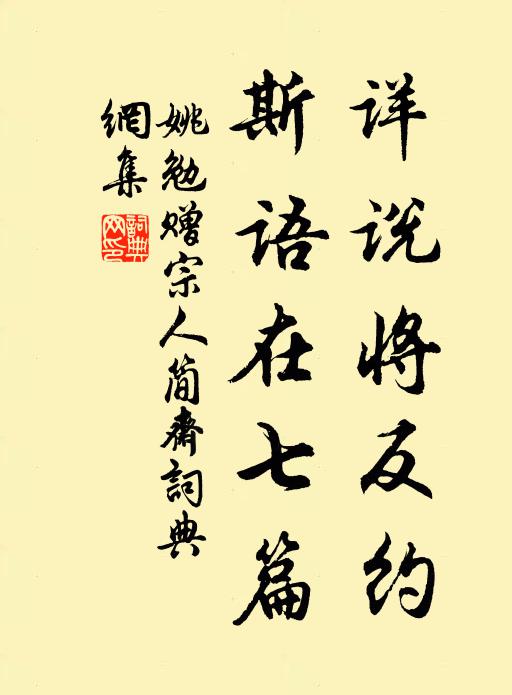 详说将反约
斯语在七篇
姚勉赠宗人简斋詞典
網集
詞典
网印